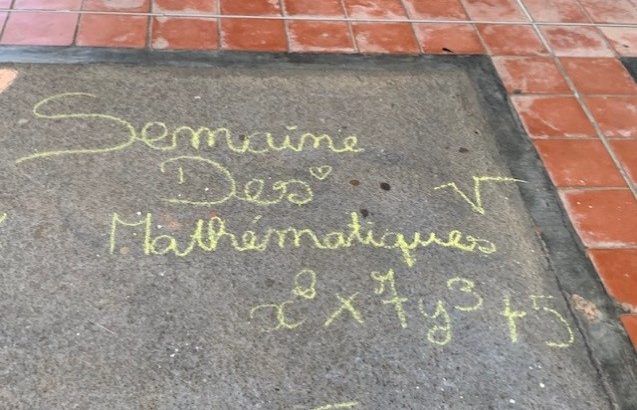 Semaine
Des
√
Mathématiques
x² x 7y³ + 5